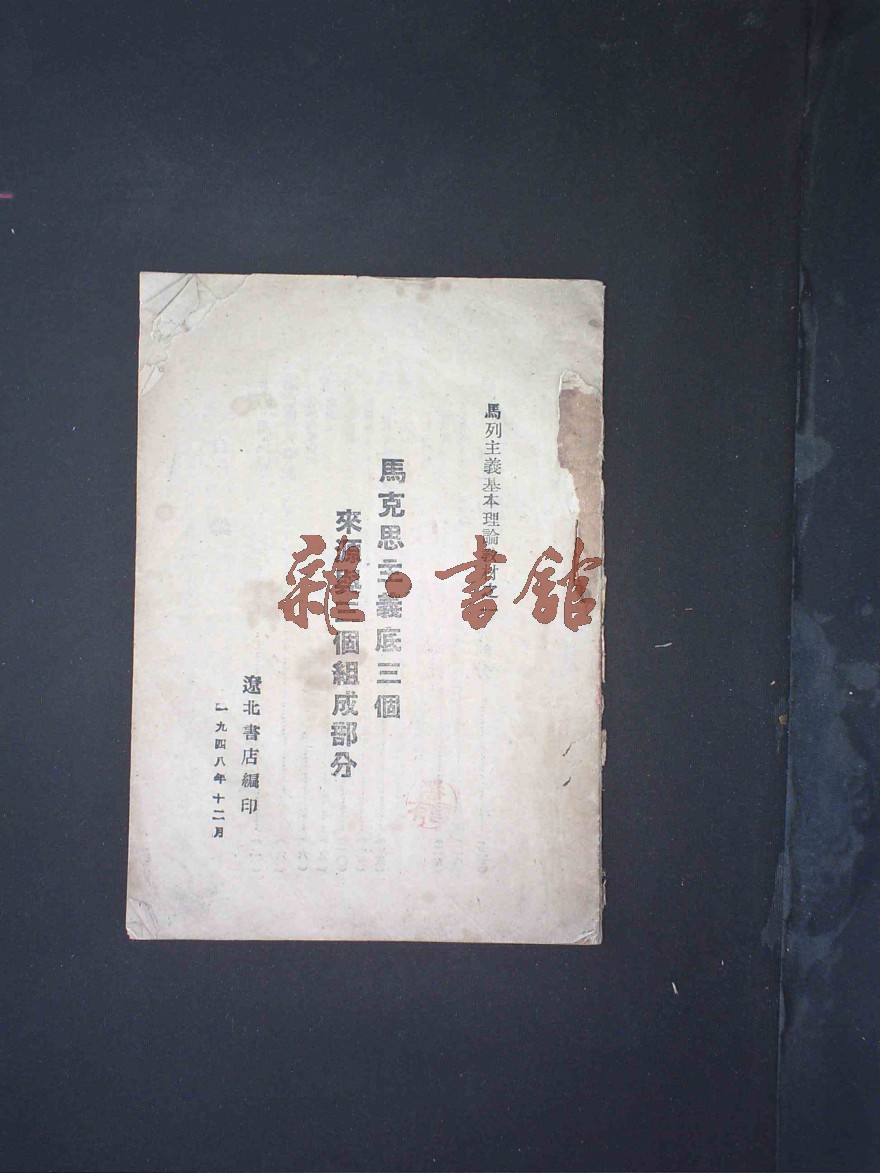 馬列主義基本理論教材之一
馬克思主義底三個
來源與三個組成部分
遼北書店編印
一九四八年十二月
雜·書館